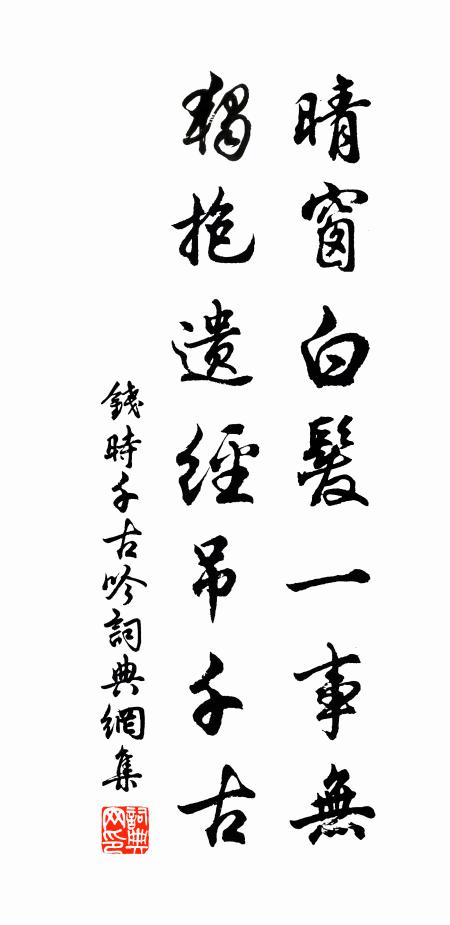 晴窗白髮一事無
獨抱遺經吊千古
錢時千古吟詞典網集
詞典
网印